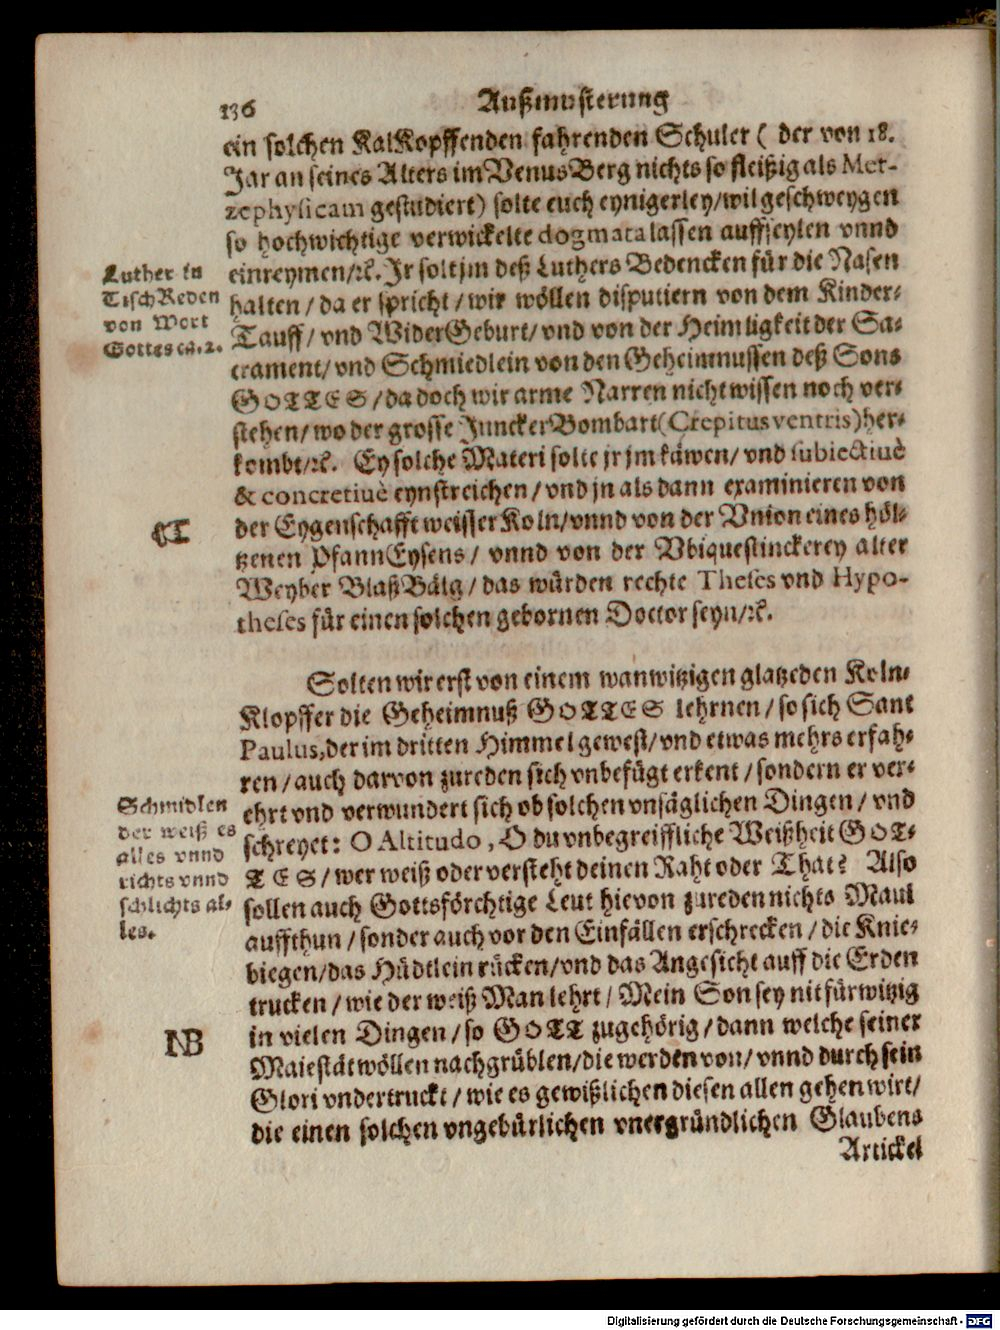 136
Außmusterung
ein solchen KalKopffenden fahrenden Schuler ( der von 18.
Jar an seines Alters im VenusBerg nichts so fleißig als Met-
zephysicam gestudiert) solte euch eynigerley/wil geschweygen
so hochwichtige verwickelte dogmata lassen auffseylen vnnd
einreymen/ꝛc. Jr solt jm deß Luthers Bedencken für die Nasen
halten / da er spricht / wir wöllen disputiern von dem Kinder-
Tauff / vnd WiderGeburt/ vnd von der Heimligkeit der Sa-
crament/ vnd Schmiedlein von den Geheimnussen deß Sons
GOTTES / da doch wir arme Narren nicht wissen noch ver-
stehen/ wo der grosse JunckerBombart (Crepitus ventris) her-
kombt/ꝛc. Ey solche Materi solte jr jm käwen/ vnd subiectiuè
& concretiuè eynstreichen / vnd jn als dann examinieren von
der Eygenschafft weisser Koln/vnnd von der Vnion eines höl-
tzenen PfannEysens / vnnd von der Vbiquestinckerey alter
Weyber BlaßBälg / das würden rechte Theses vnd Hypo-
theses für einen solchen gebornen Doctor seyn/ꝛc.
Luther in
TischReden
von Wort
Gottes ca. 2.
Solten wir erst von einem wanwitzigen glatzeden Koln-
Klopffer die Geheimnuß GOTTES lehrnen / so sich Sant
Paulus, der im dritten Himmel gewest/ vnd etwas mehrs erfah-
ren / auch darvon zureden sich vnbefügt erkent / sondern er ver-
ehrt vnd verwundert sich ob solchen vnsäglichen Dingen / vnd
schreyet: O Altitudo, O du vnbegreiffliche Weißheit GOT-
TES / wer weiß oder versteht deinen Raht oder That? Also
sollen auch Gottsförchtige Leut hievon zureden nichts Maul
auffthun / sonder auch vor den Einfällen erschrecken / die Knie-
biegen/das Hüdtlein rücken/vnd das Angesicht auff die Erden
trucken / wie der weiß Man lehrt / Mein Son sey nit fürwitzig
in vielen Dingen / so GOTT zugehörig / dann welche seiner
Maiestät wöllen nachgrüblen/die werden von/ vnnd durch sein
Glori vndertruckt / wie es gewißlichen diesen allen gehen wirt/
die einen solchen vngebürlichen vnergründlichen Glaubens
Schmidlen
der weiß es
alles vnnd
richts vnnd
schlichts al-
les.
NB
Artickel
Digitalisierung gefördert durch die Deutsche Forschungsgemeinschaft - DFG